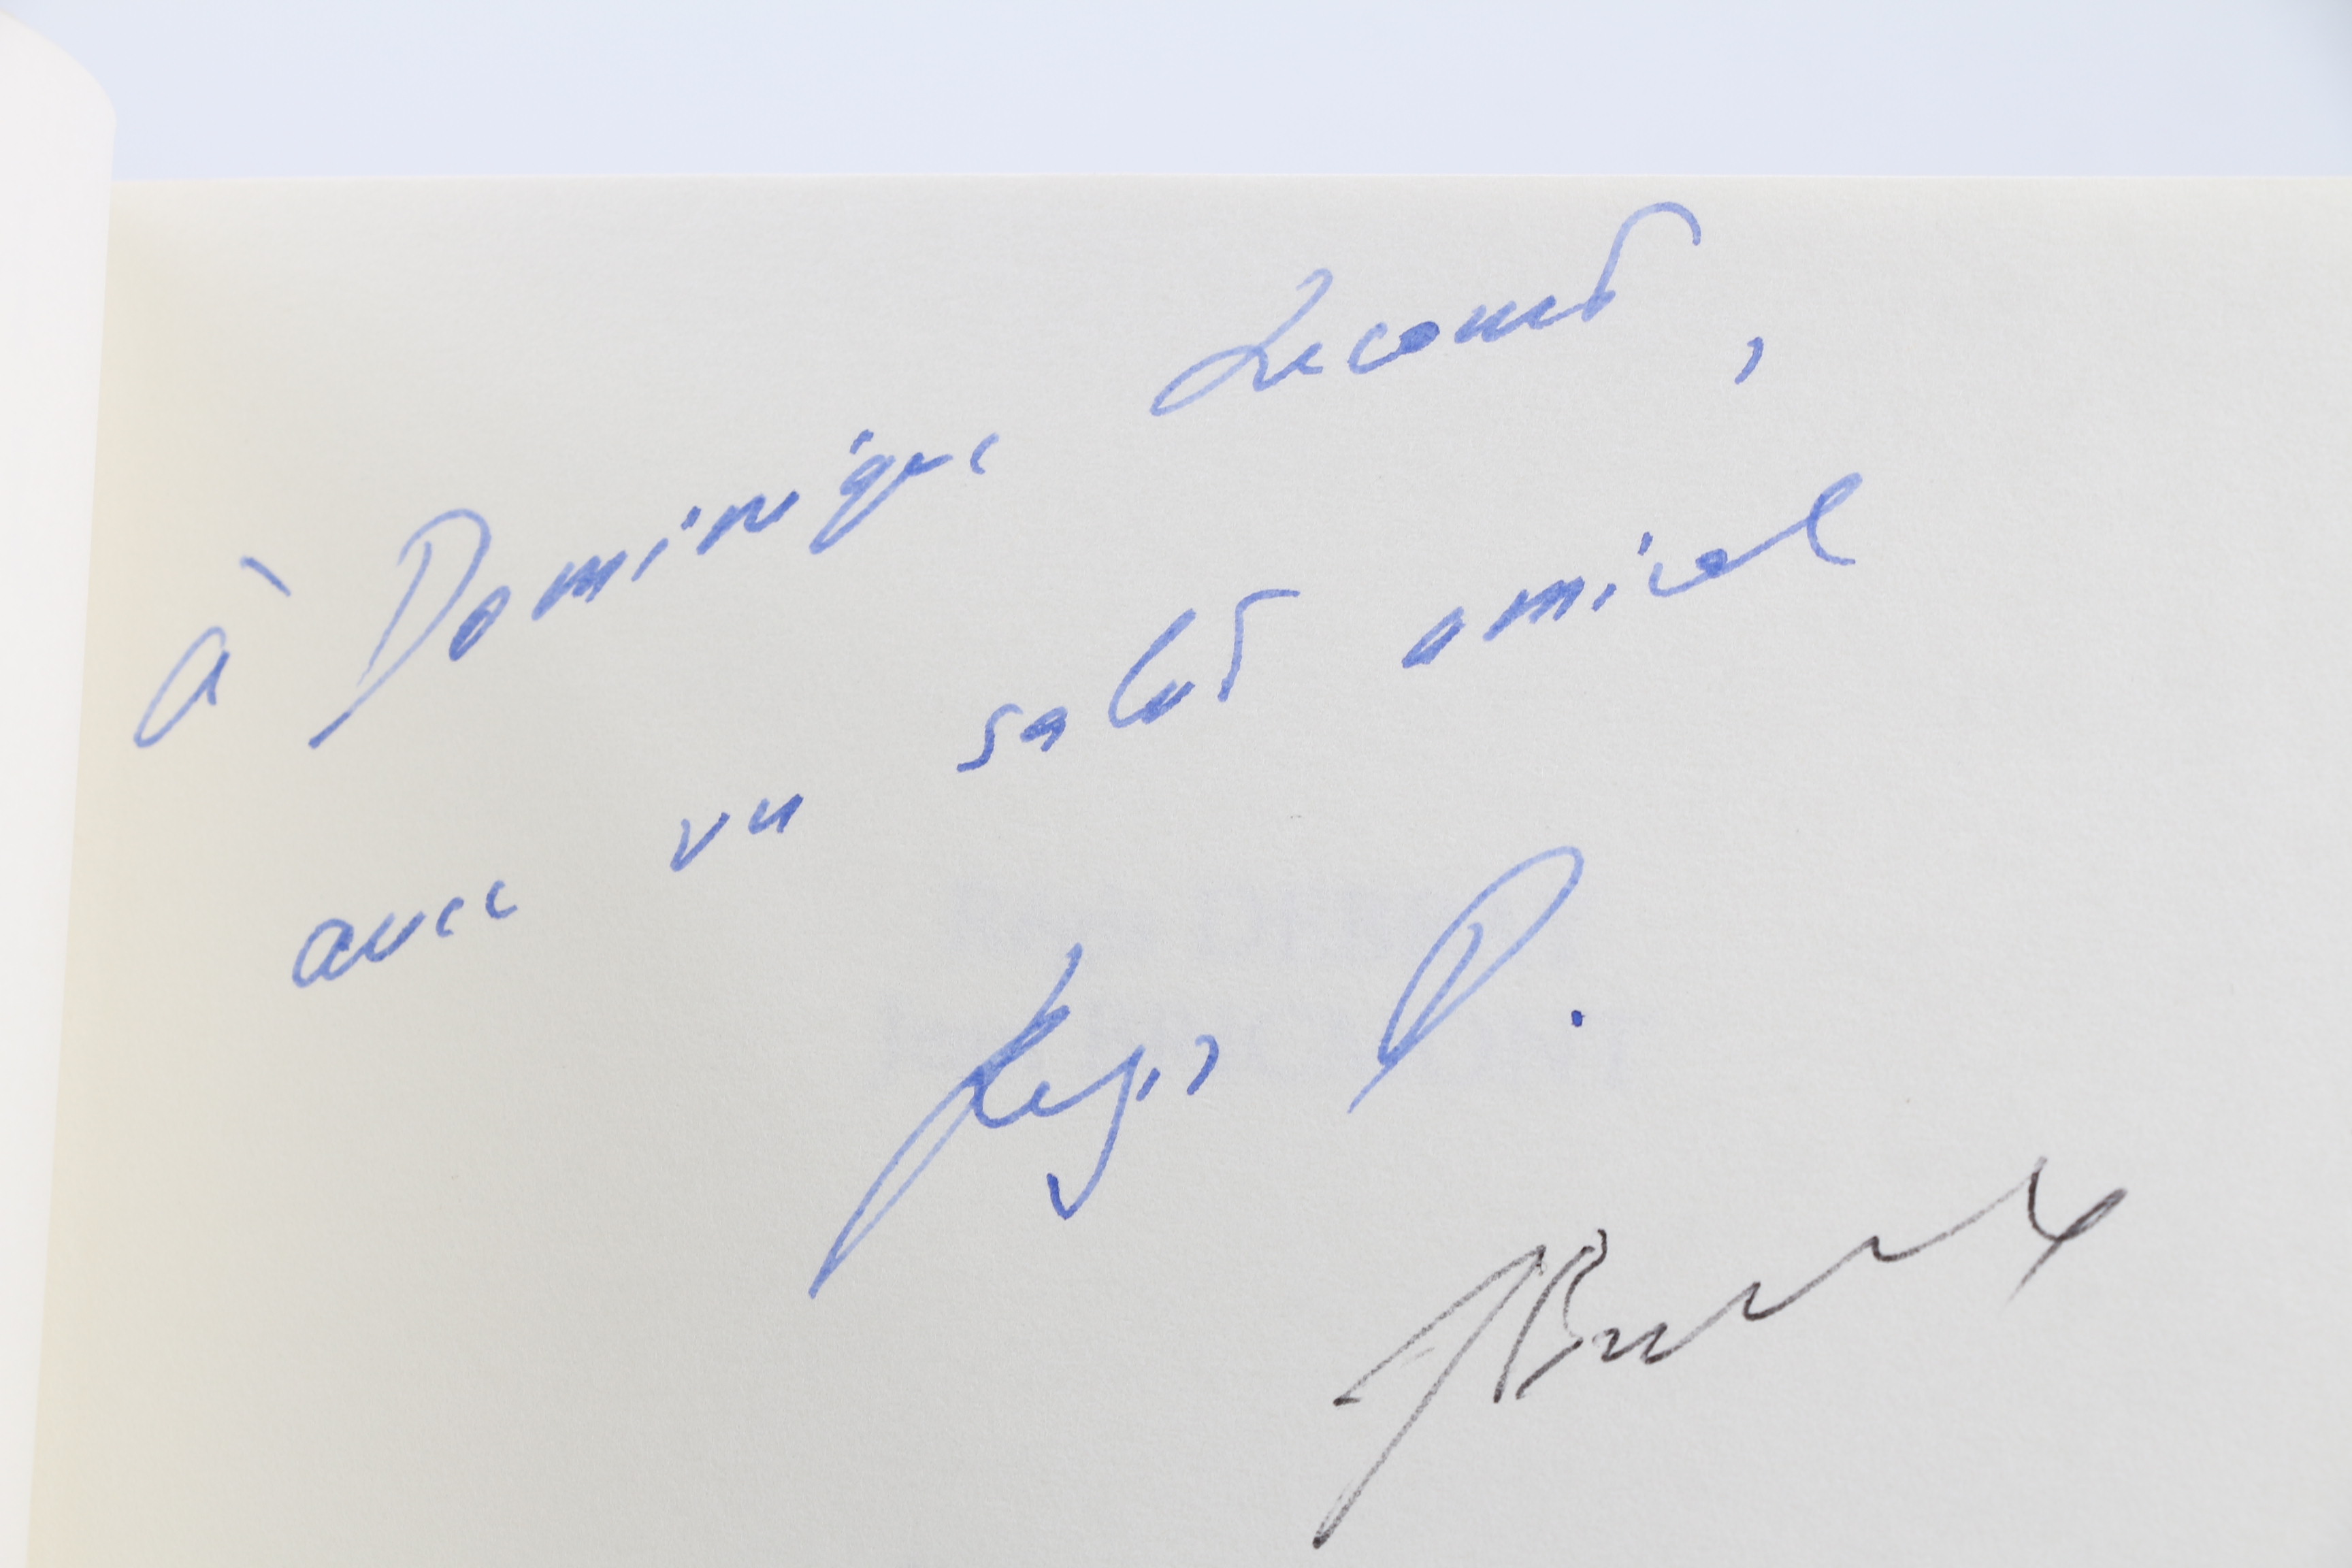 à Dominique Lecourt,
avec un salut amical
Régis D.